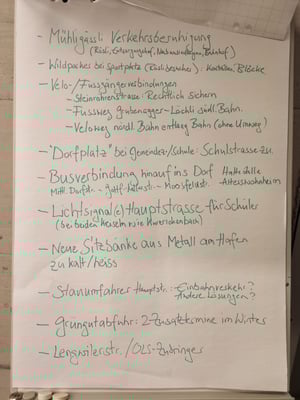 - Mühligässli Verkehrsberuhigung
(Rösli, Entsorgungshof, Bahnhof)
- Wildparker bei Sportplatz (Röslibesucher): Kontrollen, Blöcke
- Velo-/Fussgängerverbindungen
- Steinrohrenstrasse: Rechtlich sichern
- Fussweg Grubenegger-Löchli südl. Bahn.
- Veloweg nördl. Bahn entlang Bahn (ohne Umweg)
- "Dorfplatz" bei Gemeinde/Schule: Schulstrasse zu.
- Busverbindung hinauf ins Dorf Haltestelle
Mittl. Dorfstr. - - Moosfeldstr. - Alterswohnheim
- Lichtsignal(e) Hauptstrasse für Schüler
(bei beiden Kreiseln wie Hornerenbach)
- Neue Sitzbänke aus Metall am Hafen
zu kalt/heiss
- Stauumfahrer Hauptstr.: Einbahnverkehr?
Andere Lösungen?
- Grüngutabfuhr: 2 Zusatztermine im Winter
- Lengwilerstr./OLS-Zubringer